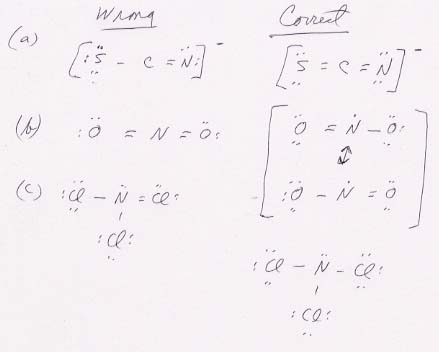 Wrong Correct
(a) [:S̤̈ - C = N̈:]⁻ [S̤̈ = C = N̤̈]⁻
(b) :Ö = N = Ö: [Ö̤ = Ṅ - Ö̤:
↕
:Ö̤ - Ṅ = Ö̤]
(c) :C̤̈l - N̈ = C̈l:
|
:C̤l:
:C̤̈l - N̈ - C̤̈l:
|
:C̤l: